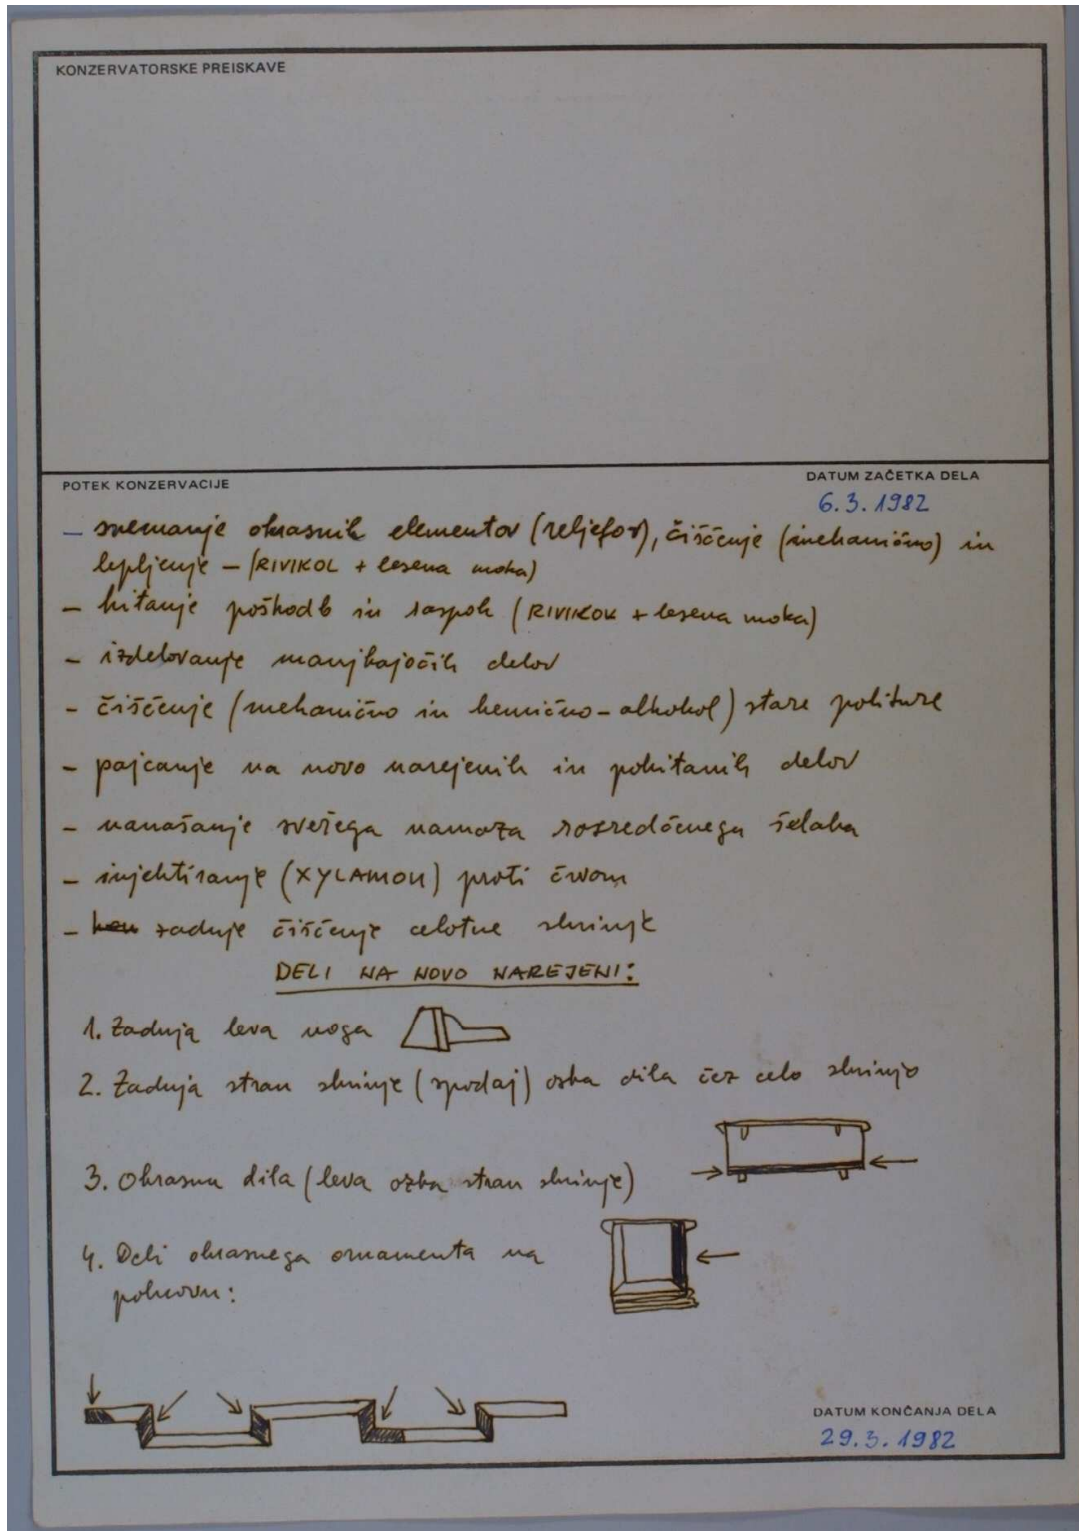 KONZERVATORSKE PREISKAVE
POTEK KONZERVACIJE
DATUM ZAČETKA DELA
6.3.1982
- snemanje okrasnih elementov (reljefov), čiščenje (mehanično) in
lepljenje - (RIVIKOL + lesena moka)
- kitanje poškodb in razpok (RIVIKOL + lesena moka)
- izdelovanje manjkajočih delov
- čiščenje (mehanično in kemično - alkohol) stare politure
- pajcanje na novo narejenih in pokitanih delov
- nanašanje svežega namaza razredčenega šelaka
- injektiranje (XYLAMON) proti črvom
- zadnje čiščenje celotne skrinje
DELI NA NOVO NAREJENI:
1. Zadnja leva noga
2. Zadnja stran skrinje (spodaj) ozka dila čez celo skrinjo
3. Okrasna dila (leva ozka stran skrinje)
4. Deli okrasnega ornamenta na
pokrovu:
DATUM KONČANJA DELA
29.3.1982